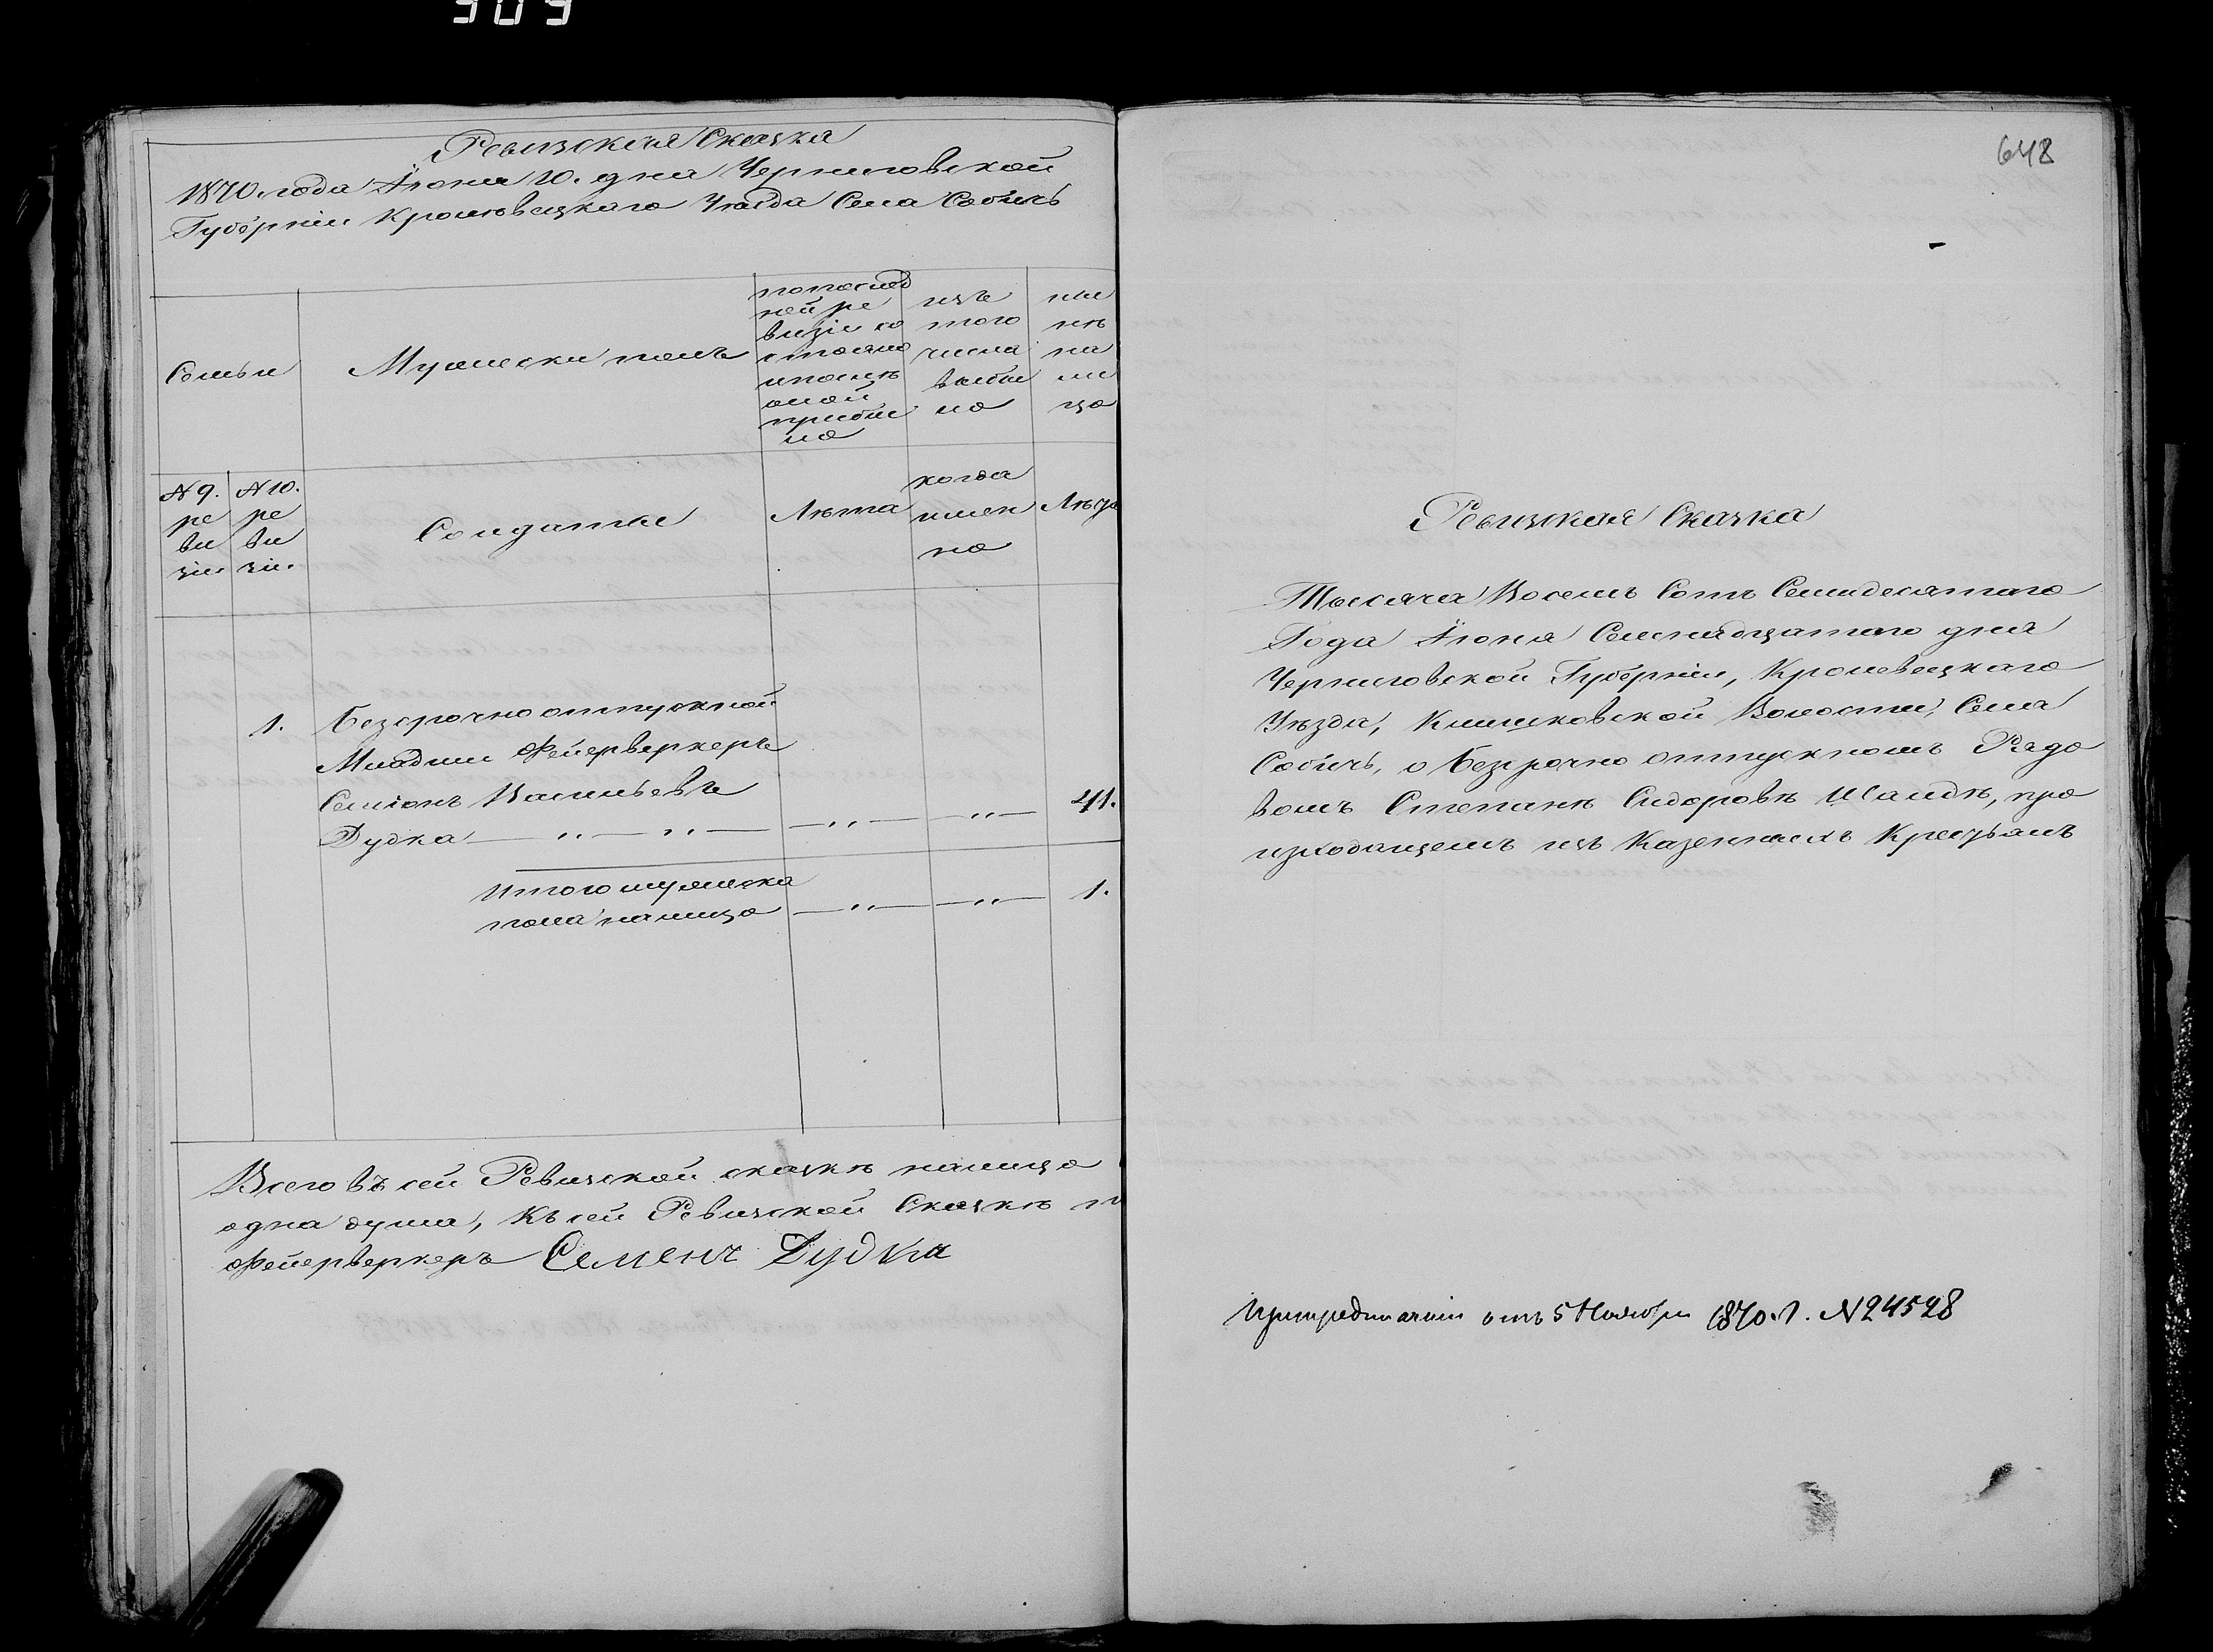 309
Ревизская Сказка
1870. года Іюня 10. дня Черниговской
Губерніи Кролевецкаго Уезда Села Собичь
Семьи
Мужески полъ
по послед
ней ре
визіи со
стояло
и после
оной
прибы
ло
изъ
того
числа
выбы
ло
ны
нѣ
на
ли
цо
№ 9.
ре
ви
зіи.
№ 10.
ре
ви
зіи.
Солдатъ
Лѣта
когда
имен
но
Лѣта
1. Безсрочно отпускной
Младши Фейерверкеръ
Семіонъ Васильевъ
Дудка — " — " — — " — — " — 41.
Итого мужеска
пола налицо — " — — " — 1.
Всего въ сей Ревизской сказкѣ налицо
одна душа, Къ сей Ревизской Сказкѣ
Фейерверкеръ Семенъ Дудка
648
Ревизская Сказка
Тысяча Восемь Сотъ Семидесятаго
Года Іюня Семнадцатаго дня
Черниговской Губерніи, Кролевецкаго
Уѣзда, Клишковской Волости, Села
Собичь, о безсрочно отпускномъ Рядо
вомъ Степанѣ Сидоровѣ Шалдѣ, про
изходящемъ изъ Казенныхъ Крестьянъ
При предписаніи отъ 5 Ноября 1870. г. № 24528